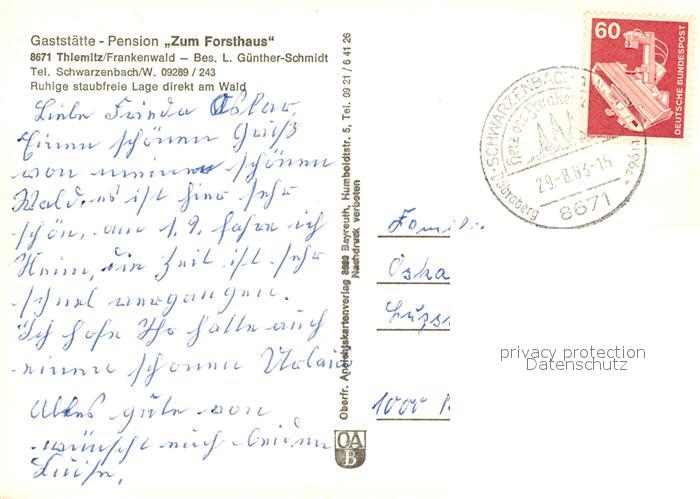 Gaststätte - Pension „Zum Forsthaus“
8671 Thiemitz/Frankenwald – Bes. L. Günther-Schmidt
Tel. Schwarzenbach/W. 09289 / 243
Ruhige staubfreie Lage direkt am Wald
Liebe Frieda Oskar,
Einen schönen Gruß
von meinem schönen
Wald, es ist hier sehr
schön, am 1.9. fahre ich
Heim, die Zeit ist sehr
schnel vergangen.
Ich hofe Ihr hatte auch
einen schönen Urlaub
Alles gute von
wünscht euch beiden
Luise,
Oberfr. Ansichtskartenverlag 8580 Bayreuth, Humboldtstr. 5, Tel. 09 21 / 6 41 26
Nachdruck verboten
OA
B
60
DEUTSCHE BUNDESPOST
SCHWARZENBACH
Herz des Frankenwaldes
Döbraberg
29.-8.83-15
8671
Famili
Oska
1000
privacy protection
Datenschutz